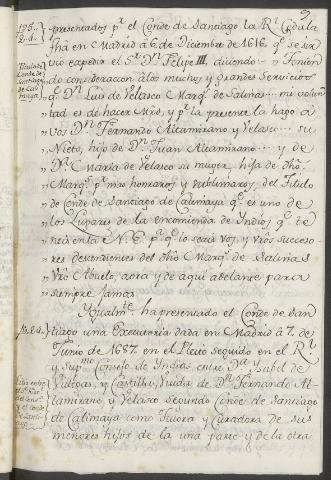 presentados pr. el Conde de Santiago la Rl. Cedula
fha en Madrid a 6 de Diciembre de 1616 qe. se sir
vio expedir el Sr. Dn. Felipe III, diciendo
consideracion a los muchos y grandes Servicios
qe. Dn. Luis de Velasco Marqs. de Salinas mi volun
tad es de hacer Mrd, y pr. la presente la hago a
vos Dn. Fernando Altamirano y Velasco su
Nieto, hijo de Dn. Juan Altamirano y de
Da. Maria de Velasco su muger, hija de dho.
Marqs. pa. mas honraros y sublimaros, del Titulo
de Conde de Santiago de Calimaya qe. es uno de
los Lugares de la encomienda de Yndios qe. te
neis en la N. E. pa. qe. lo seais vos, y vros. succeso
res descendientes del dho Marqs. de Salinas
vro. Abuelo, aora y de aqui adelante para
siempre jamas.
Igualmte. ha presentado el Conde de San
tiago una Executoria dada en Madrid a 7. de
Junio de 1687. en el Pleito seguido en el Rl.
y Supmo. Consejo de Indias entre Da. Isabel de
Villegas, y Castilla, Viuda de Dn. Fernando Al
tamirano, y Velasco, segundo Conde de Santiago
de Calimaya como Tutora y Curadora de sus
menores hijos de la una parte y de la otra